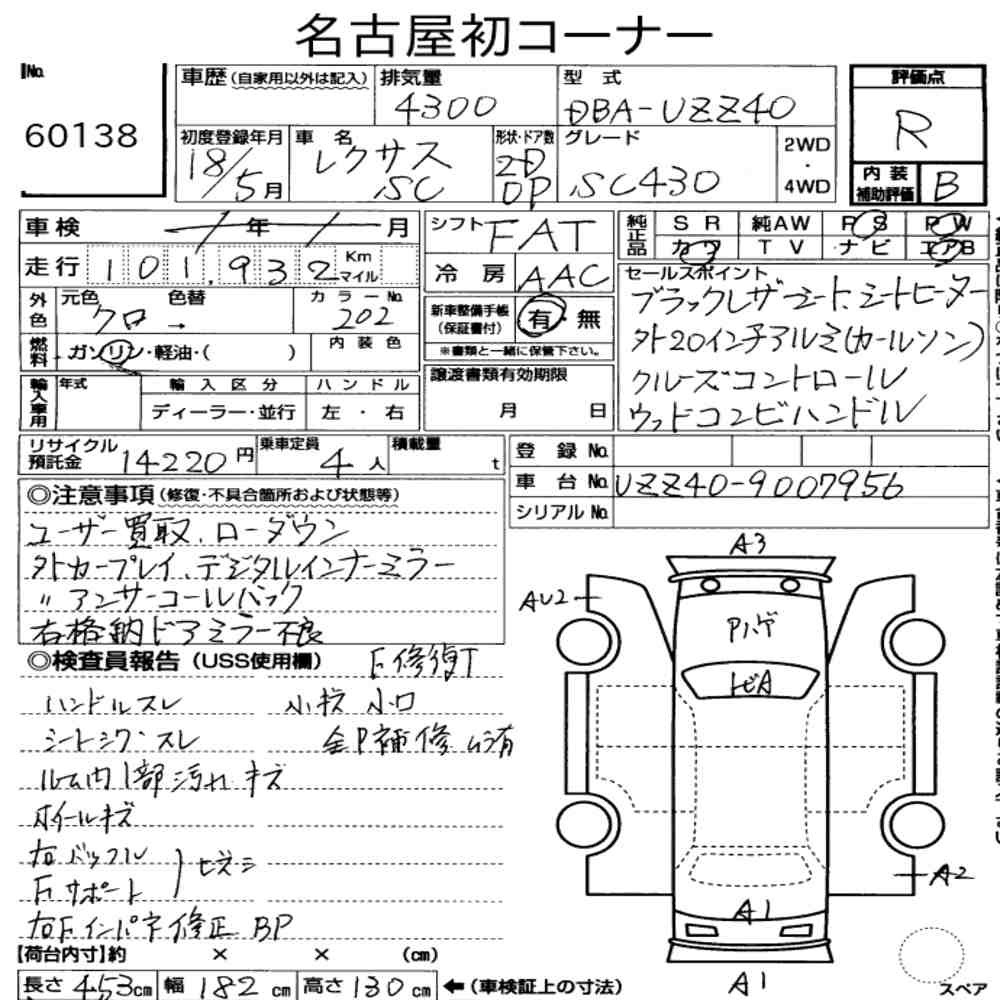 名古屋初コーナー
No. 60138
車歴(自家用以外は記入) 排気量 4300 型式 DBA-UZZ40
評価点 R
初度登録年月 18/5月 車名 レクサス SC 形状・ドア数 2D OP グレード SC430 2WD・4WD
内装補助評価 B
車検 / 年 / 月 シフト FAT 純正品 SR 純AW PS PW
カワ TV ナビ エアB
走行 101,932 Km マイル 冷房 AAC
外色 元色 クロ → 色替 カラーNo. 202
新車整備手帳(保証書付) 有・無
※書類と一緒に保管下さい。
燃料 ガソリン・軽油・( ) 内装色
セールスポイント
ブラックレザーシート、シートヒーター
外20インチアルミ(カールソン)
クルーズコントロール
ウッドコンビハンドル
輸入車用 年式 輸入区分 ハンドル
ディーラー・並行 左・右
譲渡書類有効期限
月 日
リサイクル預託金 14220円 乗車定員 4人 積載量 t
登録No.
車台No. UZZ40-9007956
シリアルNo.
◎注意事項(修復・不具合箇所および状態等)
ユーザー買取、ローダウン
外カープレイ、デジタルインナーミラー
〃アンサーコールバック
右格納ドアミラー不良
◎検査員報告(USS使用欄) F修復T
ハンドルスレ 小枝 小口
シートシワ・スレ 全P補修ムラ有
ルーム内1部汚れ キズ
ホイールキズ
右バッフル
Fサポート ヒズミ
右Fインパネ修正 BP
A3
AU2
Pハゲ
トビA
A2
A1
A1
スペア
【荷台内寸】約 × × (cm)
長さ 453cm 幅 182cm 高さ 130cm ←(車検証上の寸法)